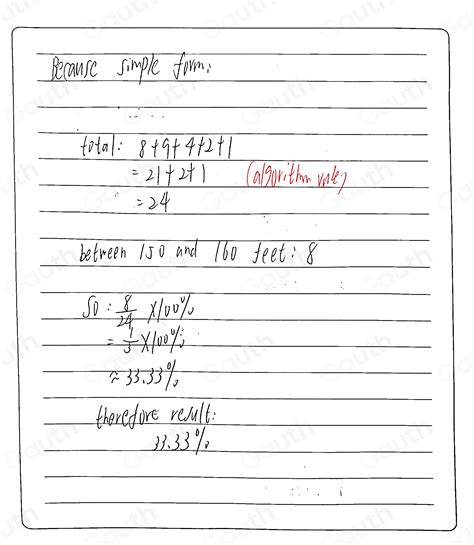 Because simple form:
total: 8+9+4+2+1
= 21+2+1 (algorithm rule)
= 24
between 150 and 160 feet: 8
So: 8/24 ×100%
= 1/3 ×100%
≈ 33.33%
therefore result:
33.33%
Gauth